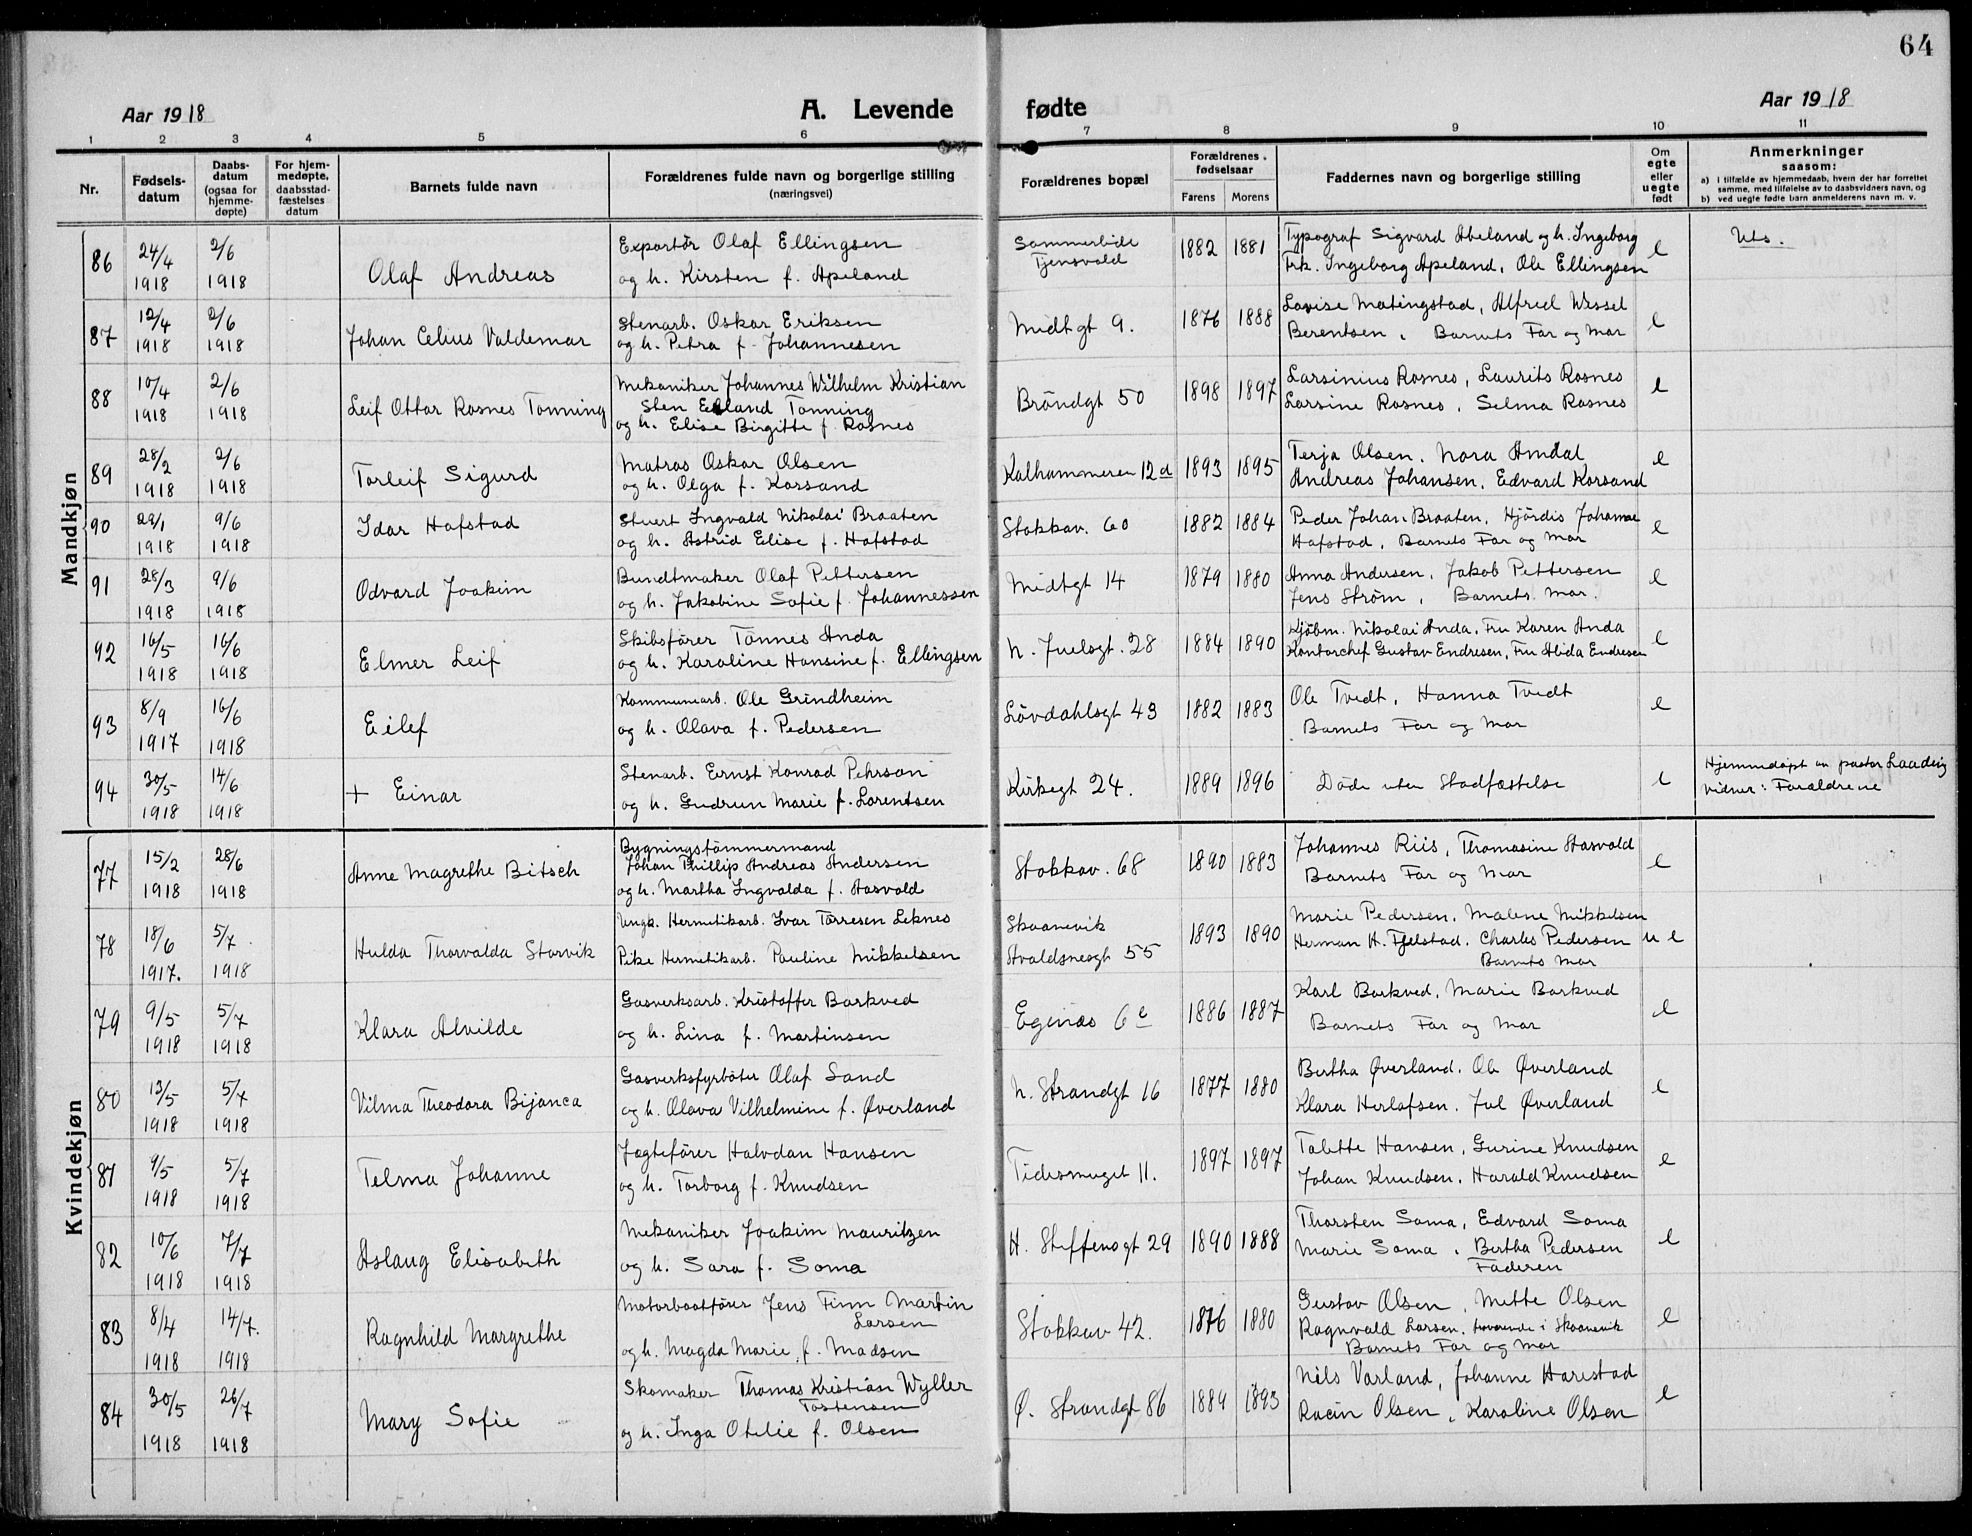 64
Aar 1918
A. Levende fødte
Aar 1918
1 2 3 4 5 6 7 8 9 10 11
Nr.
Fødsels-
datum
Daabs-
datum
(ogsaa for
hjemme-
døpte)
For hjem-
medøpte,
daabsstad-
fæstelses
datum
Barnets fulde navn
Forældrenes fulde navn og borgerlige stilling
(næringsvei)
Forældrenes bopæl
Forældrenes
fødselsaar
Farens Morens
Faddernes navn og borgerlig stilling
Om
egte
eller
uegte
født
Anmerkninger
saasom:
a) i tilfælde av hjemmedaab, hvem der har forrettet
samme, med tilføielse av to daabsvidners navn, og
b) ved uegte fødte barn anmelderens navn m. v.
Mandkjøn
86 24/4 1918 2/6 1918 Olaf Andreas
Exportør Olaf Ellingsen
og h. Kirsten f. Apeland
Sommerlide
Tjensvold
1882 1881
Typograf Sigvard Abeland og h. Ingeborg
Frk. Ingeborg Apeland, Ole Ellingsen
e
Uts.
87 12/4 1918 2/6 1918 Johan Celius Valdemar
Stenarb. Oskar Eriksen
og h. Petra f. Johannesen
Midtgt 9.
1876 1888
Lovise Matingstad, Alfred Wessel
Berentsen, Barnets Far og Mor
e
88 10/4 1918 2/6 1918 Leif Ottar Rosnes Tonning
Mekaniker Johannes Wilhelm Kristian
Sten Eeland Tonning
og h. Elise Birgitte f. Rosnes
Brøndgt 50
1898 1897
Larsinius Rosnes, Laurits Rosnes
Larsine Rosnes, Selma Rosnes
e
89 28/2 1918 2/6 1918 Torleif Sigurd
Matros Oskar Olsen
og h. Olga f. Korsand
Kalhammeren 12 d
1893 1895
Terja Olsen. Nora Amdal
Andreas Johansen, Edvard Korsand
e
90 29/1 1918 9/6 1918 Idar Hofstad
Stuert Ingvald Nikolai Braaten
og h. Astrid Elise f. Hofstad
Stokkav. 60
1882 1884
Peder Johan Braaten, Hjördis Johanne
Hofstad, Barnets Far og Mor
e
91 28/3 1918 9/6 1918 Odvard Joakim
Bundtmaker Olaf Pettersen
og h. Jakobine Sofie f. Johannessen
Midtgt 14
1879 1880
Anna Andersen, Jakob Pettersen
Jens Strøm, Barnets Mor.
e
92 16/5 1918 16/6 1918 Elmer Leif
Skibsfører Tönnes Anda
og h. Karoline Hansine f. Ellingsen
N. Juelsgt. 28
1884 1890
Kjøbm. Nikolai Anda, Fru Karen Anda
Kontorchef Gustav Endresen, Fru Alida Endresen
e
93 8/9 1917 16/6 1918 Eilef
Kommunearb. Ole Grindheim
og h. Olava f. Pedersen
Lövdahlsgt 43
1882 1883
Ole Tvedt, Hanna Tvedt
Barnets Far og Mor
e
94 30/5 1918 14/6 1918 + Einar
Stenarb. Ernst Konrad Pehrson
og h. Gudrun Marie f. Lorentsen
Kirkegt 24.
1889 1896
Døde uten Stadfæstelse
e
Hjemmedøpt av pastor Laading
Vidner: Forældrene
Kvindekjøn
77 15/2 1918 28/6 1918 Anne Magrethe Bitsch
Bygningstømmermand
Johan Phillip Andreas Andersen
og h. Martha Ingvalda f. Aasvold
Stokkav. 68
1890 1883
Johannes Riis, Thomasine Aasvold
Barnets Far og Mor
e
78 18/6 1917. 5/7 1918 Hulda Thorvalda Storvik
Ungk. Hermetikarb. Ivar Torresen Leknes
Pike Hermetikarb. Pauline Mikkelsen
Skaanevik
Avaldsnesgt 55
1893 1890
Marie Pedersen, Malene Mikkelsen
Herman H. Fjelstad. Charles Pedersen
Barnets Mor
u e
79 9/5 1918 5/7 1918 Klara Alvilde
Gasverksarb. Kristoffer Barkved
og h. Lina f. Martinsen
Egenæs 6 e
1886 1887
Karl Barkved, Marie Barkved
Barnets Far og Mor
e
80 13/5 1918 5/7 1918 Vilma Theodora Bijanca
Gasverksfyrbøter Olaf Sand
og h. Olava Vilhelmine f. Øverland
N. Strandgt 16
1877 1880
Bertha Øverland, Ole Øverland
Klara Herlofsen. Jul Øverland
e
81 9/5 1918 5/7 1918 Telma Johanne
Jagtefører Halvdan Hansen
og h. Torborg f. Knudsen
Tidesmuget 11.
1897 1897
Tolette Hansen, Gurine Knudsen
Johan Knudsen, Harald Knudsen
e
82 10/6 1918 7/7 1918 Aslaug Elisabeth
Mekaniker Joakim Mauritzen
og h. Sara f. Soma
H. Steffensgt 29
1890 1888
Thorsten Soma, Edvard Soma
Marie Soma, Bertha Pedersen
Faderen
e
83 8/4 1918 14/7. 1918 Ragnhild Margrethe
Motorbaatfører Jens Finn Martin
Larsen
og h. Magda Marie f. Madsen
Stokkav 42.
1876 1880
Gustav Olsen, Mette Olsen
Ragnvald Larsen, i Skaanevik
Barnets Far og Mor
e
84 30/5 1918 26/7 1918 Mary Sofie
Skomaker Thomas Kristian Wyller
Tostensen
og h. Inga Otelie f. Olsen
Ø. Strandgt 86
1884 1893
Nils Varland, Johanne Harestad
Racin Olsen, Karoline Olsen
e